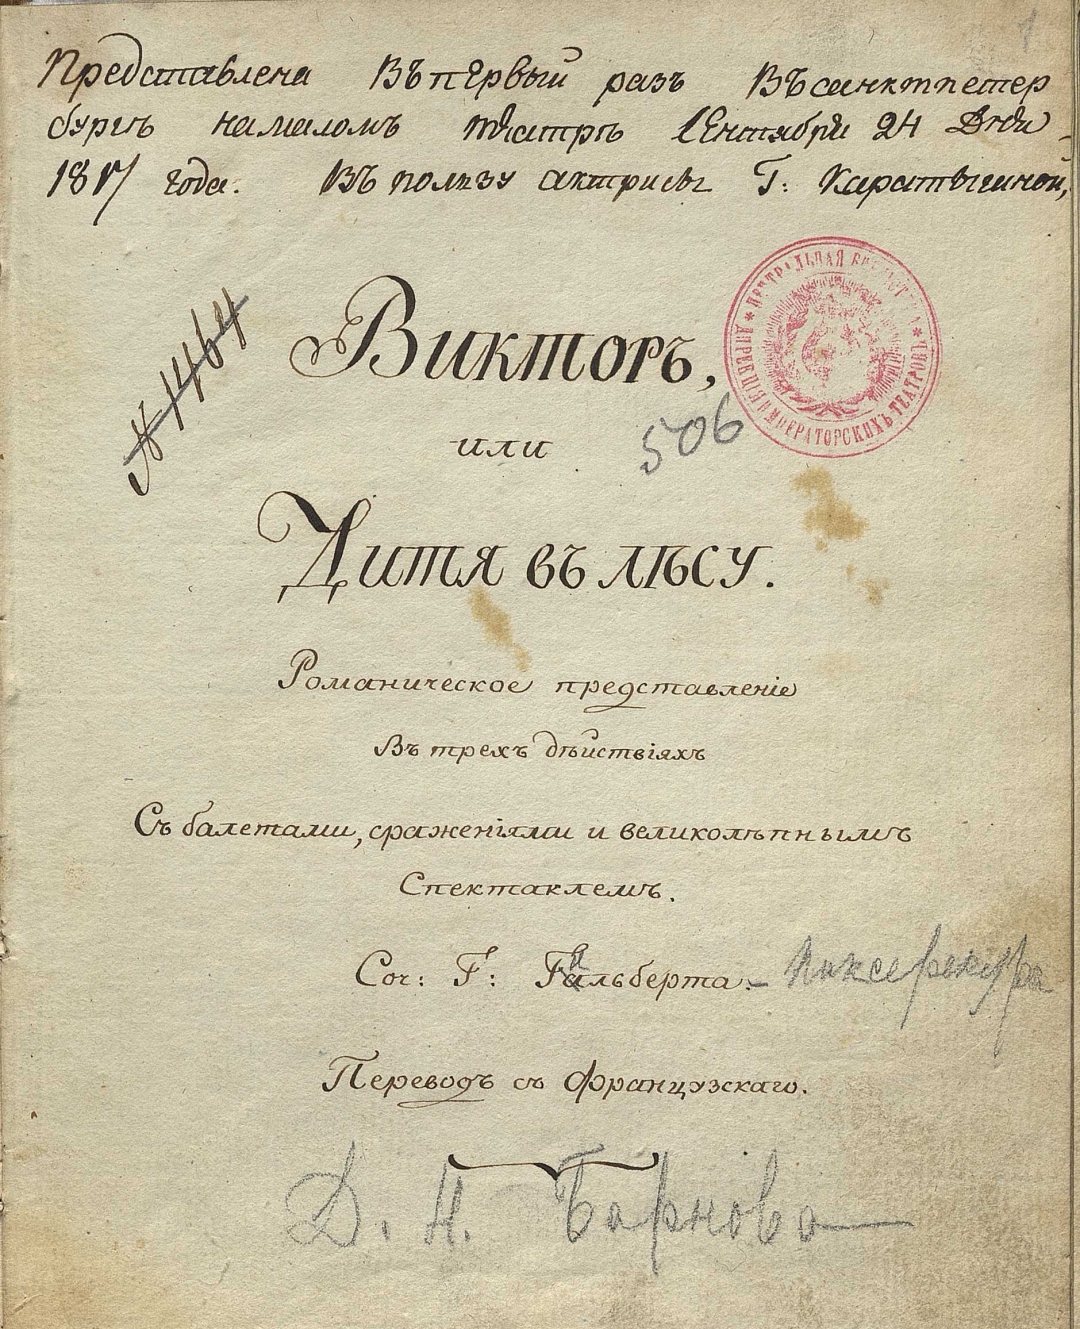 1
Представлена Въпервый разъ Въсанктпетер
бургѣ намаломъ театрѣ Сентября 24 Дня
1817 года. Въ пользу актрисы Г: Каратыгиной,
№ 1464
Викторъ,
ЦЕНТРАЛЬНАЯ БИБЛІОТЕКА * ДИРЕКЦІЯ ИМПЕРАТОРСКИХЪ ТЕАТРОВЪ *
или
506
Дитя въ лѣсу.
Романическое представленіе
Въ трехъ дѣйствіяхъ
Съ балетами, сраженіями и великолѣпнымъ
Спектаклемъ.
Соч: Г: Гильберта. - Пиксерекура
Переводъ съ Французскаго.
Д. Н. Баркова